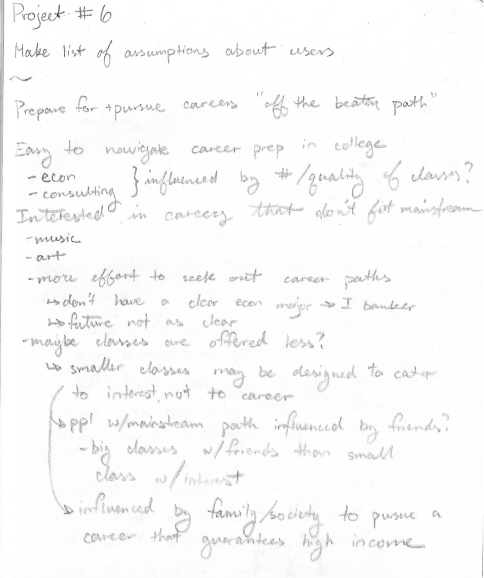 Project # 6
Make list of assumptions about users
~
Prepare for + pursue careers "off the beaten path"
Easy to navigate career prep in college
- econ
- consulting } influenced by #/quality of classes?
Interested in careers that don't fit mainstream
- music
- art
- more effort to seek out career paths
↳ don't have a clear econ major → I banker
↳ future not as clear
- maybe classes are offered less?
↳ smaller classes may be designed to cater
to interest, not to career
↳ ppl w/mainsteam path influenced by friends?
- big classes w/friends than small
class w/interest
↳ influenced by family/society to pursue a
career that guarantees high income